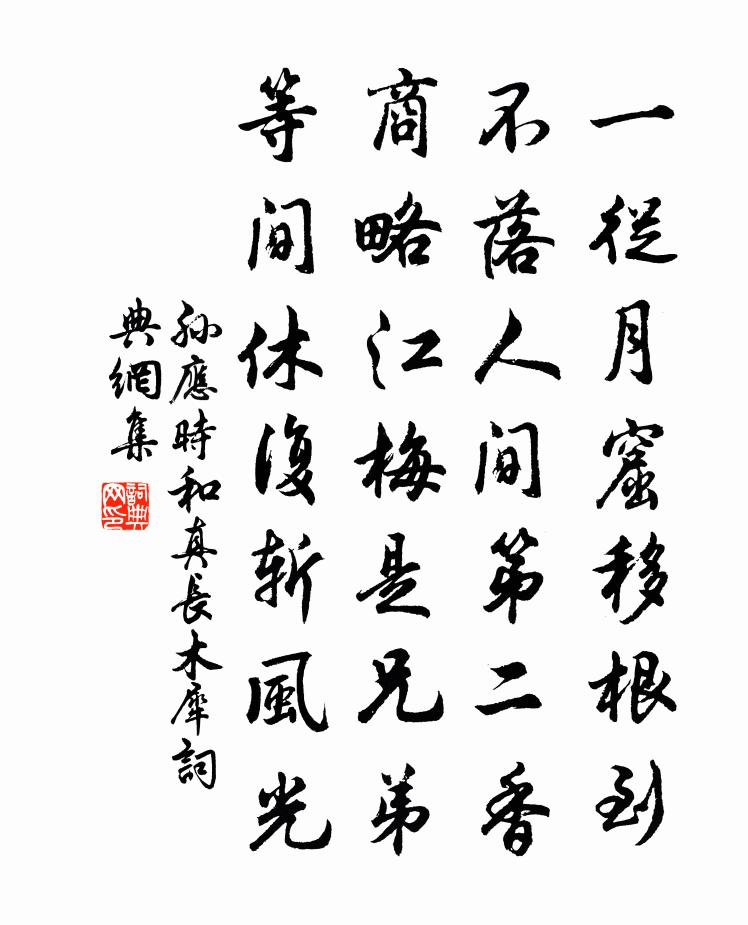 一從月窟移根到
不落人間第二香
商略江梅是兄弟
等閒休復斬風光
孫應時和真長木犀詞
典網集
詞典網印